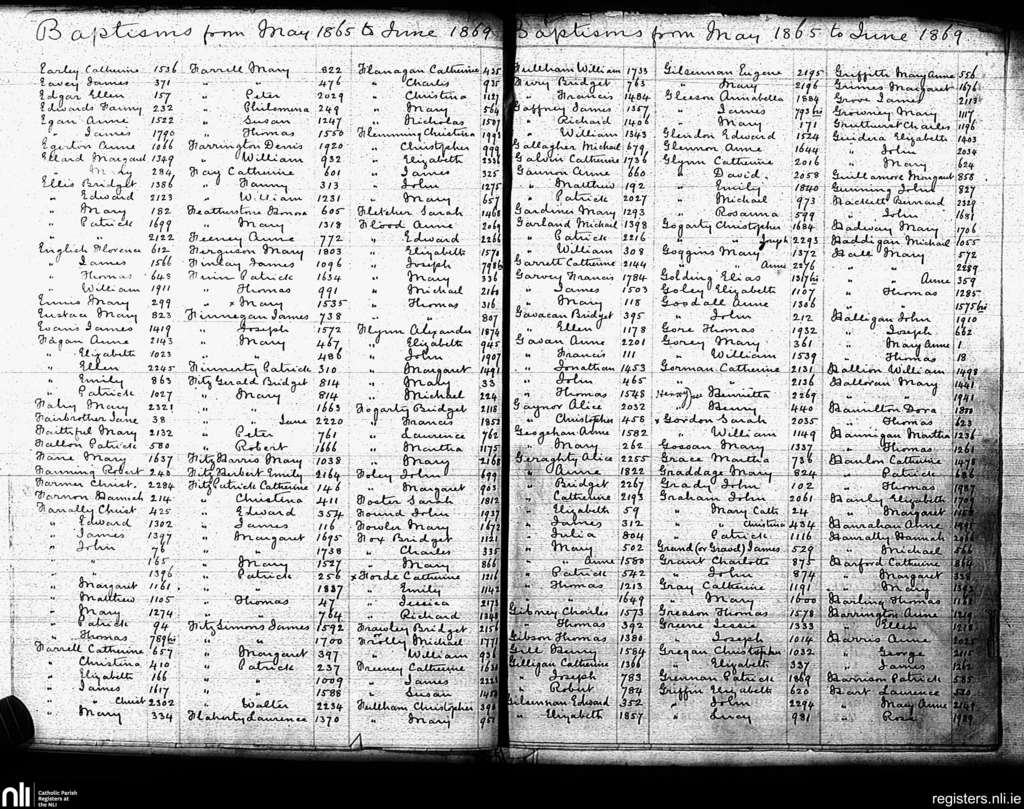 Baptisms from May 1865 to June 1869
Earley Catherine 1536
Eavey James 371
Edgar Ellen 157
Edwards Fanny 232
Egan Anne 1522
„ James 1790
Egerton Anne 1066
Ellard Margaret 1349
„ Mary 284
Ellis Bridget 1386
„ Edward 2123
„ Mary 182
„ Patrick 1699
„ „ 2122
English Florence 612
„ James 1566
„ Thomas 648
„ William 1911
Ennis Mary 299
Eustace Mary 823
Evans James 1419
Fagan Anne 2143
„ Elizabeth 1023
„ Ellen 2245
„ Emily 863
„ Patrick 1027
Fahy Mary 2321
Fairbrother Jane 38
Faithful Mary 2132
Fallon Patrick 580
Fane Mary 1637
Fanning Robert 240
Farmer Christ. 2284
Farnon Hannah 214
Farrally Christ 425
„ Edward 1302
„ James 1397
„ John 76
„ „ 165
„ „ 1396
„ Margaret 1161
„ Matthew 1105
„ Mary 1274
„ Patrick 94
„ Thomas 789 bis
Farrell Catherine 657
„ Christina 410
„ Elizabeth 166
„ James 1617
„ „ Christ 2302
„ Mary 334
Farrell Mary 822
„ „ 476
„ Peter 2029
„ Philomena 249
„ Susan 1247
„ Thomas 1550
Farrington Denis 1920
„ William 932
Fay Catherine 601
„ Fanny 313
„ William 1231
Featherstone Honora 605
„ Mary 1318
Feeney Anne 772
Ferguson Mary 1803
Finlay James 1096
Finn Patrick 1634
„ Thomas 991
„ x Mary 1535
Finnegan James 738
„ Joseph 1572
„ Mary 467
„ „ 486
Finnerty Patrick 310
Fitz Gerald Bridget 814
„ Mary 814
„ „ 1663
„ „ Jane 2220
„ Peter 761
„ Robert 1666
Fitz Harris Mary 1038
Fitz Herbert Emily 2164
Fitz Patrick Catherine 146
„ Christina 411
„ Edward 354
„ James 116
„ Margaret 1695
„ „ 1738
„ Mary 1527
„ Patrick 256
„ „ 1837
„ Thomas 47
„ „ 764
Fitz Simons James 1592
„ „ 1700
„ Margaret 397
„ Patrick 237
„ „ 1009
„ „ 1588
„ Walter 2234
Flaherty Laurence 1370
Flanagan Catherine 435
„ Charles 935
„ Christina 1127
„ Mary 564
„ Nicholas 1507
Flemming Christina 1993
„ Christopher 999
„ Elizabeth 2336
„ James 325
„ John 1275
„ Mary 657
Fletcher Sarah 1468
Flood Anne 2069
„ Edward 2266
„ Elizabeth 1578
„ Joseph
„ Mary 336
„ Michael 2160
„ Thomas 316
„ „ 807
Flynn Alexander 1874
„ Elizabeth 945
„ John 1907
„ Margaret 1491
„ Mary 33
„ Michael 224
Fogarty Bridget 2118
„ Francis 1852
„ Laurence 762
„ Martha 1175
„ Mary 2168
Foley John 699
„ Margaret 903
Foster Sarah 1812
Found John 1937
Fowler Mary 1672
Fox Bridget 1121
„ Charles 335
„ Mary 866
x Forde Catherine 1216
„ Emily 1142
„ Jessica 2173
„ Richard 1348
Frawley Bridget 2156
Frolley Michael 1771
„ William 936
Freeney Catherine
„ James
„ Susan
Fulham Christopher
„ Mary
Baptisms from May 1865 to June 1869
Fullham William 1733
Fury Bridget 763
„ Francis 1484
Gaffney James 1357
„ Richard 1406
„ William 1343
Gallagher Michael 679
Galvin Catherine 1736
Gannon Anne 660
„ Matthew 192
„ Patrick 2027
Gardiner Mary 1293
Garland Michael 1398
„ Patrick 2216
„ William 308
Garrett Catherine 2144
Garvey Francis 1784
„ James 1503
„ Mary 118
Gavacan Bridget 395
„ Ellen 1178
Gavan Anne 2201
„ Francis 111
„ Jonathan 1453
„ John 465
„ Thomas 1548
Gaynor Alice 2032
„ Christopher 456
Geoghan Anne 1582
„ Mary 262
Geraghty Alice 2255
„ Anne 1822
„ Bridget 2267
„ Catherine 2193
„ Elizabeth 59
„ James 312
„ Julia 804
„ Mary 502
„ „ Anne 1580
„ Patrick 542
„ Thomas 1213
„ „ 1649
Gibney Charles 1573
„ Thomas 392
Gibson Thomas 1380
Gill Henry 1584
Gilligan Catherine 1366
„ Joseph 783
„ Robert 784
Gilsennan Edward 352
„ Elizabeth 1857
Gilsennan Eugene 2195
„ Mary 2196
Gleeson Annabella 1884
„ James 793 bis
„ Mary 171
Glendon Edward 1524
Glennon Anne 1644
Glynn Catherine 2016
„ David 2058
„ Emily 1840
„ Michael 973
„ Rosanna 599
Gogarty Christopher 1684
„ „ Joseph 2293
Goggins Mary 1372
„ „ Anne 2276
Golding Elias 1317 bis
Goley Elizabeth 1107
Goodall Anne 1306
„ John 212
Gore Thomas 1932
Gorey Mary 361
„ William 1539
Gorman Catherine 2131
„ „ 2136
Henrietta 2269
„ Henry 440
x Gordon Sarah 2035
„ William 1149
Gossan Mary 1337
Grace Martha 736
Graddage Mary 824
Grady John 102
Graham John 2061
„ Mary Cath 24
„ „ Christina 434
„ Patrick 1116
Grand (or Graod) James 529
Grant Charlotte 875
„ John 874
Gray Catherine 1191
„ Mary 1600
Greason Thomas 1578
Greene Jessie 1333
„ Joseph 1014
Gregan Christopher 1032
„ Elizabeth 337
Grennan Patrick 1869
Griffin Elizabeth 620
„ John 2294
„ Lucy 981
Griffith Mary Anne 556
Grimes Margaret 1676
Grove James 2113
Growney Mary 1117
Gruthurst Charles 1196
Guidera Elizabeth 1403
„ John 2034
„ Mary 624
Guillamore Margaret 858
Gunning John 827
Hackett Bernard 2329
„ John 1681
Hadway Mary 1706
Haddigan Michael 1055
Hall Mary 572
„ „ 2289
„ „ Anne 359
„ Thomas 1285
„ „ 1575 bis
Halligan John 1910
„ Joseph 662
„ Mary Anne 1
„ Thomas 18
Hallion William 1498
Halloran Mary 1441
„ „ 1941
Hamilton Dora
„ Thomas 623
Hannigan Martha 1236
„ Thomas 1261
Hanlon Catherine 1478
„ Patrick 686
„ Thomas
Hanly Elizabeth 1709
„ Margaret
Hanrahan Anne
Hanrally Hannah
„ Michael
Harford Catherine 864
„ Margaret
„ Mary
Harling Thomas
Harrington Anne
„ Ellen
Harris Anne
„ George
„ James
Harrison Patrick 585
Hart Laurence
„ Mary Anne
„ Rose
nli
Catholic Parish
Registers at
the NLI
registers.nli.ie